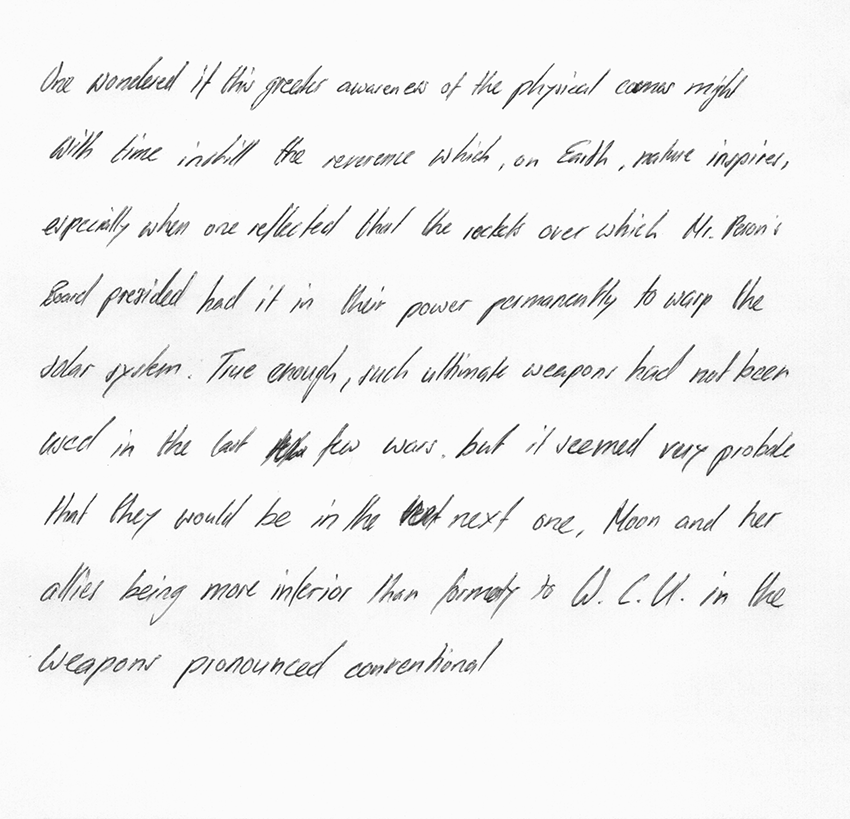 One wondered if this greater awareness of the physical cosmos might
with time instill the reverence which, on Earth, nature inspires,
especially when one reflected that the rockets over which Mr. Peron's
Board presided had it in their power permanently to warp the
solar system. True enough, such ultimate weapons had not been
used in the last few wars, but it seemed very probable
that they would be in the next one, Moon and her
allies being more inferior than formerly to W. C. U. in the
weapons pronounced conventional